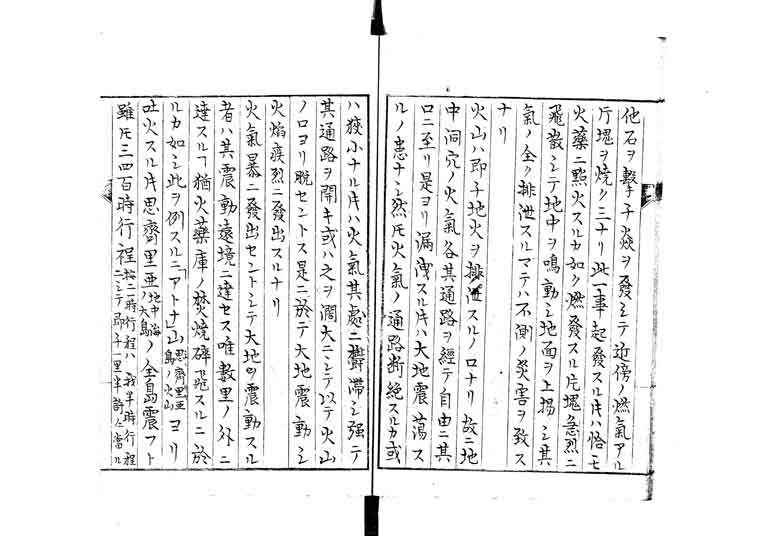 他石ヲ撃チ焱ヲ發シテ近傍ノ燃氣アル
片塊ヲ燒ク三ナリ此一事起發スル片ハ恰モ
火藥ニ點火スルカ如ク燃發スル片塊急烈ニ
飛散シテ地中ヲ鳴動シ地面ヲ上揚シ其
氣ノ全ク排泄スルマテハ不測ノ災害ヲ致ス
ナリ
火山ハ即チ地火ヲ排泄スルノ口ナリ故ニ地
中洞穴ノ火氣各其通路ヲ經テ自由ニ其
口ニ至リ是ヨリ漏洩スル片ハ大地震蕩ス
ルノ患ナシ然𪜈火氣ノ通路断絶スルカ或
ハ狹小ナル片ハ火氣其處ニ欝滯シ强テ
其通路ヲ開キ或ハ之ヲ濶大ニシテ以テ火山
ノ口ヨリ脱セントス是ニ於テ大地震動シ
火焰猋烈ニ發出スルナリ
火氣暴ニ發出セントシテ大地ヲ震動スル
者ハ其震動遠境ニ達セス唯數里ノ外ニ
達スルヿ猶火藥庫ノ焚燒碎飛スルニ於
ルカ如シ此ヲ例スルニ「アトナ」山思齊里亜島ノ火山ヨリ
吐火スル片思齊里亜地中海ノ大島ノ全島震フト
雖𪜈三四百時行程按二一時行程ハ我半時行程ニシテ即チ一里半許ニ當ル